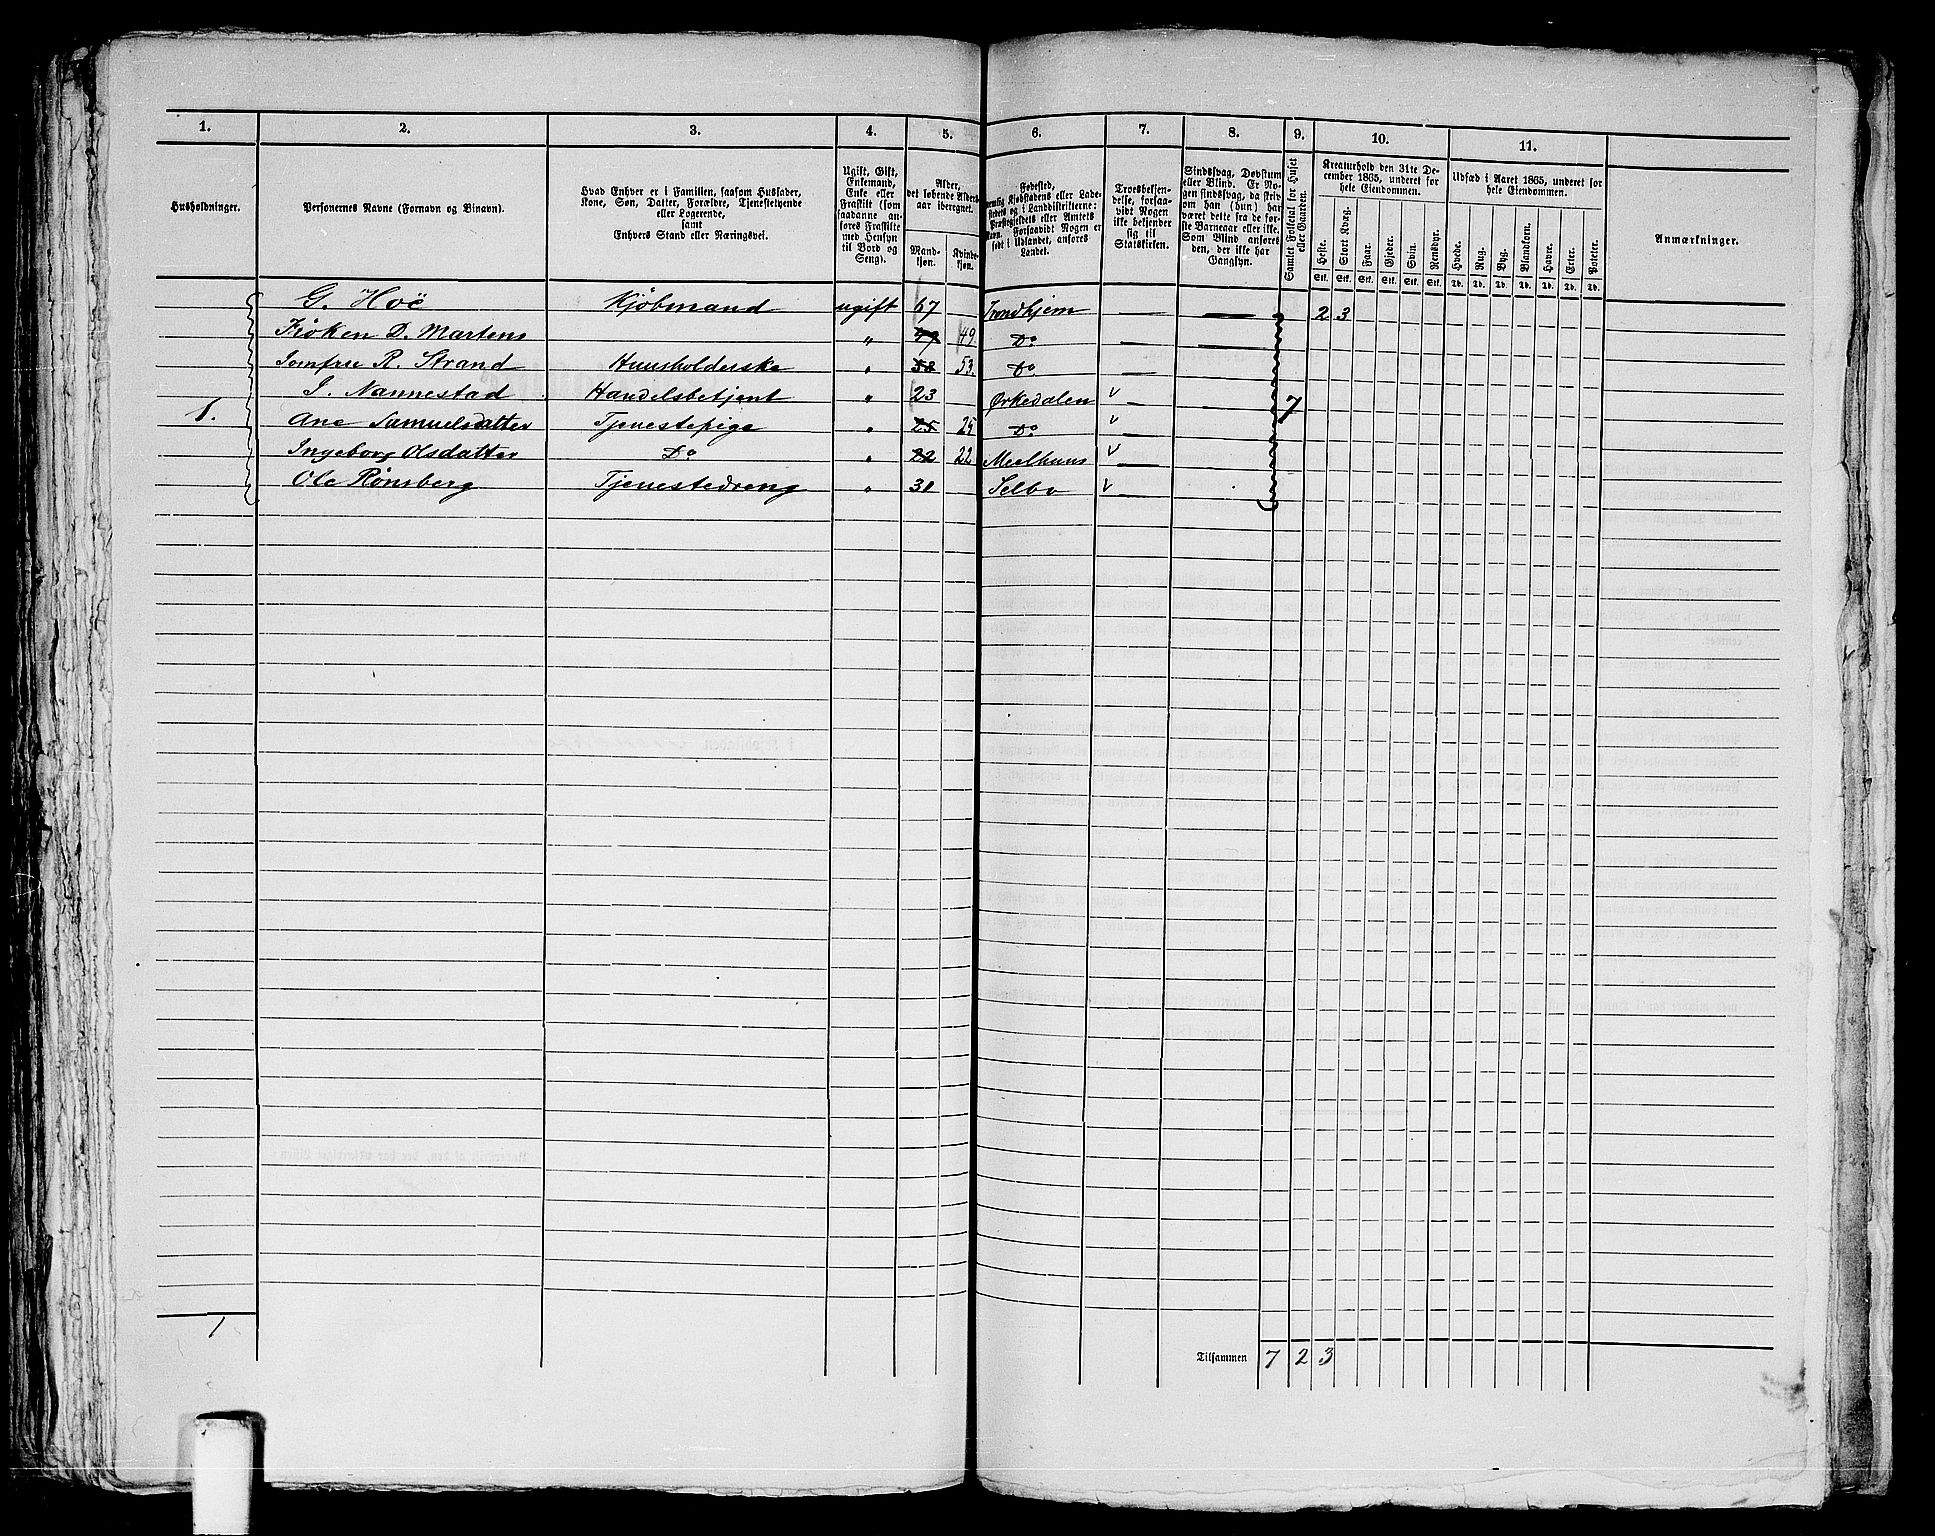 1. 2. 3. 4. 5. 6. 7. 8. 9. 10. 11.
Husholdninger.
Personernes Navne (Fornavn og Binavn).
Hvad Enhver er i Familien, saasom Husfader,
Kone, Søn, Datter, Forældre, Tjenestetyende
eller Logerende,
samt
Enhvers Stand eller Næringsvei.
Ugift, Gift,
Enkemand,
Enke eller
Fraskilt (som
saadanne an-
føres Fraskilte
med Hensyn
til Bord og
Seng).
Alder,
det løbende Alders-
aar iberegnet.
Mand-
kjøn.
Kvinde-
kjøn.
Fødested,
nemlig Kjøbstadens eller Lade-
stedets og i Landdistrikterne:
Præstegjeldets eller Amtets
Navn. Forsaavidt Nogen er
født i Udlandet, anføres
Landet.
Troesbekjen-
delse, forsaa-
vidt Nogen
ikke bekjender
sig til
Statskirken.
Sindssvag, Døvstum
eller Blind. Er No-
gen sindssvag, da skriv
om han (hun) har
været dette fra de før-
ste Barneaar eller ikke.
Som Blind anføres
den, der ikke har
Gangsyn.
Samlet Folketal for Huset
eller Gaarden.
Kreaturhold den 31te De-
cember 1865, underet for
hele Eiendommen.
Heste. Stort Kvæg. Faar. Gjeder. Svin. Rensdyr.
Stk. Stk. Stk. Stk. Stk. Stk.
Udsæd i Aaret 1865, underet for
hele Eiendommen.
Hvede. Rug. Byg. Blandkorn. Havre. Erter. Poteter.
Td. Td. Td. Td. Td. Td. Td.
Anmærkninger.
G. Høë Kjøbmand ugift 67 Trondhjem — — 2 3
Frøken D. Martens " 49 49. Do — —
Jomfrue R. Strand Huusholderske " 53 53. Do — —
J. Nannestad Handelsbetjent " 23 Ørkedalen v — — 7
1. Ane Samuelsdatter Tjenestepige " 25 25 Do v — —
Ingeborg Olsdatter Do " 22 22 Meelhuus v — —
Ole Rønsberg Tjenestedreng " 31 Selbo v —
1
Tilsammen 7 2 3